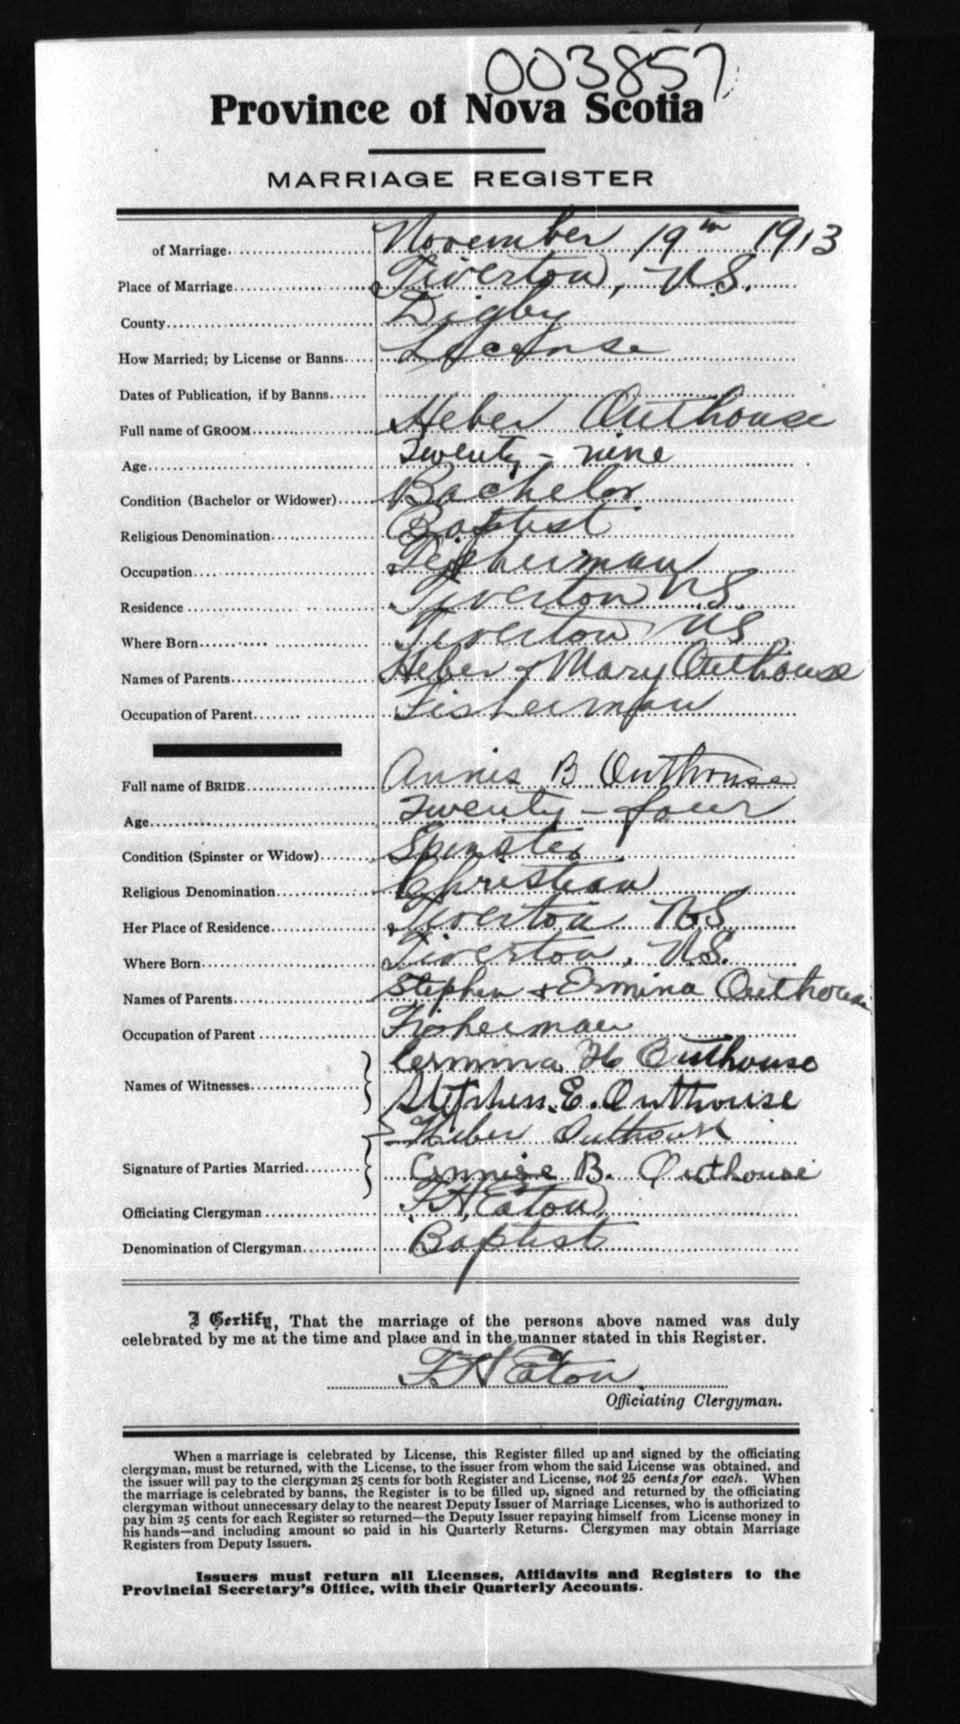 003857
Province of Nova Scotia
MARRIAGE REGISTER
of Marriage November 19th 1913
Place of Marriage Tiverton, N.S.
County Digby
How Married; by License or Banns License
Dates of Publication, if by Banns
Full name of GROOM Heber Outhouse
Age Twenty-nine
Condition (Bachelor or Widower) Bachelor
Religious Denomination Baptist
Occupation Fisherman
Residence Tiverton N.S.
Where Born Tiverton NS
Names of Parents Heber & Mary Outhouse
Occupation of Parent Fisherman
Full name of BRIDE Annis B Outhouse
Age Twenty-four
Condition (Spinster or Widow) Spinster
Religious Denomination Christian
Her Place of Residence Tiverton N.S
Where Born Tiverton, N.S.
Names of Parents Stephen & Ermina Outhouse
Occupation of Parent Fisherman
Outhouse
Names of Witnesses Stephen E. Outhouse
Heber Outhouse
Signature of Parties Married Annise B. Outhouse
Officiating Clergyman F.H. Eaton
Denomination of Clergyman Baptist
I Certify, That the marriage of the persons above named was duly
celebrated by me at the time and place and in the manner stated in this Register.
F H Eaton
Officiating Clergyman.
When a marriage is celebrated by License, this Register filled up and signed by the officiating
clergyman, must be returned, with the License, to the issuer from whom the said License was obtained, and
the issuer will pay to the clergyman 25 cents for both Register and License, not 25 cents for each. When
the marriage is celebrated by banns, the Register is to be filled up, signed and returned by the officiating
clergyman without unnecessary delay to the nearest Deputy Issuer of Marriage Licenses, who is authorized to
pay him 25 cents for each Register so returned—the Deputy Issuer repaying himself from License money in
his hands—and including amount so paid in his Quarterly Returns. Clergymen may obtain Marriage
Registers from Deputy Issuers.
Issuers must return all Licenses, Affidavits and Registers to the
Provincial Secretary's Office, with their Quarterly Accounts.